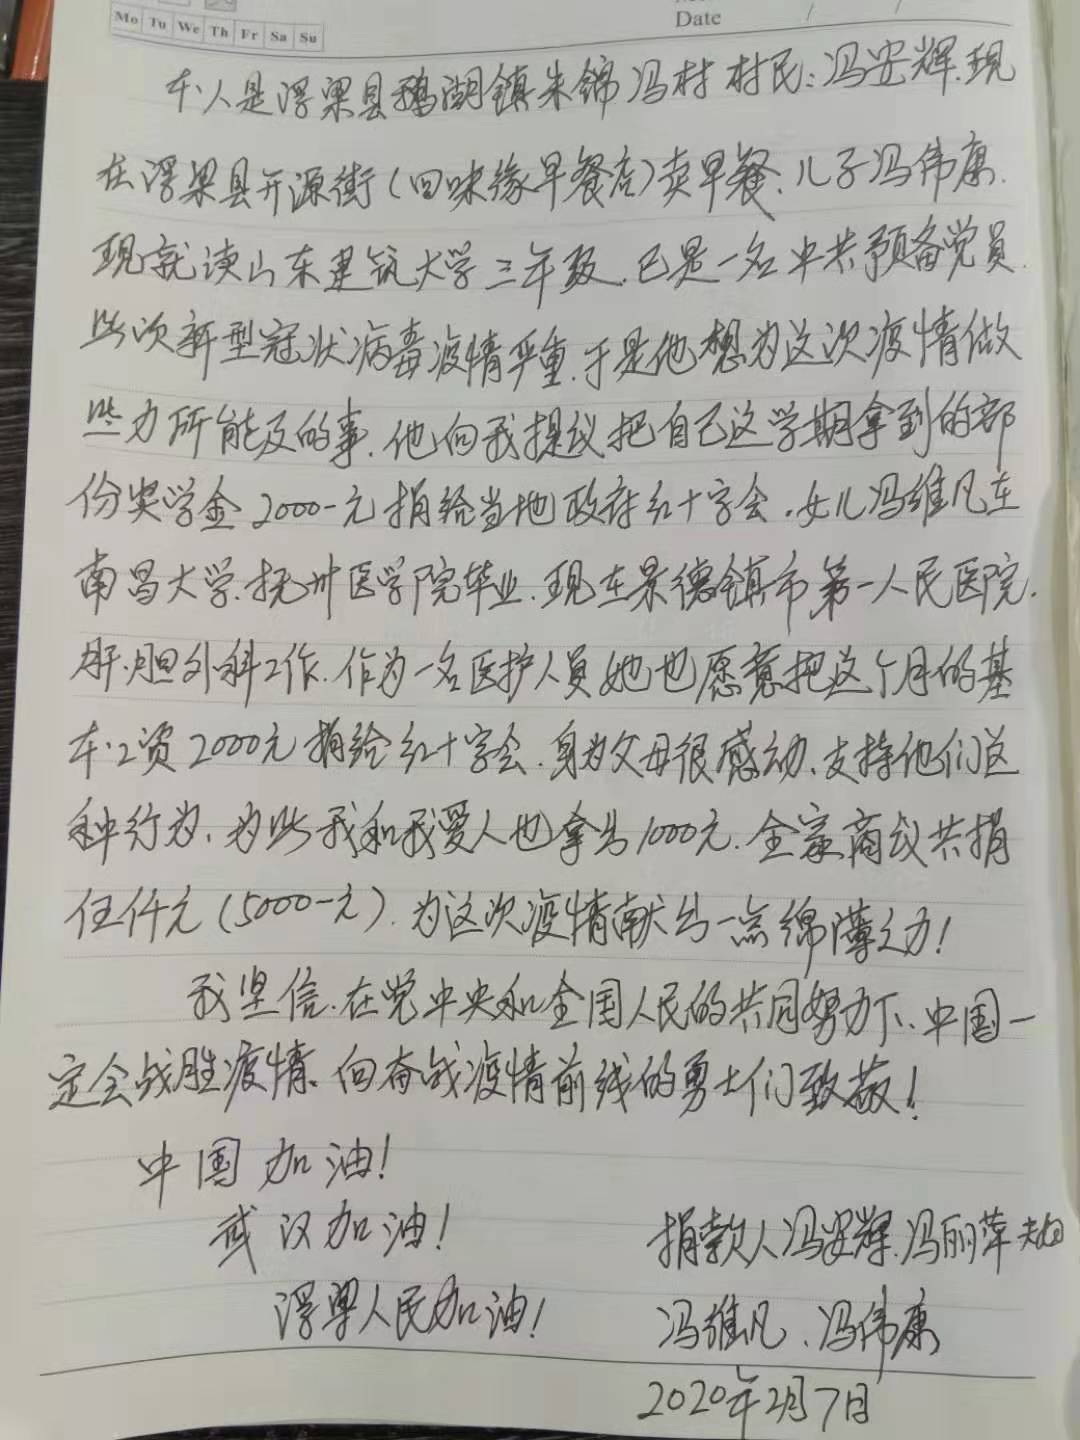 Mo Tu We Th Fr Sa Su
Date / /
本人是浮梁县鹅湖镇朱锦冯村村民:冯安辉.现
在浮梁县开源街(四味缘早餐店)卖早餐.儿子冯伟康.
现就读山东建筑大学三年级.已是一名中共预备党员.
此次新型冠状病毒疫情严重.于是他想为这次疫情做
些力所能及的事.他向我提议把自己这学期拿到的部
份奖学金2000-元捐给当地政府红十字会.女儿冯维凡在
南昌大学.抚州医学院毕业.现在景德镇市第一人民医院.
肝.胆外科工作.作为一名医护人员她也愿意把这个月的基
本工资2000元捐给红十字会.身为父母很感动、支持他们这
种行为、为此我和我爱人也拿出1000元.全家商议共捐
伍仟元(5000-元).为这次疫情献出一点绵薄之力!
我坚信.在党中央和全国人民的共同努力下、中国一
定会战胜疫情、向奋战疫情前线的勇士们致敬!
中国加油!
武汉加油!
浮梁人民加油!
捐款人冯安辉.冯丽萍夫妇
冯维凡、冯伟康
2020年2月7日